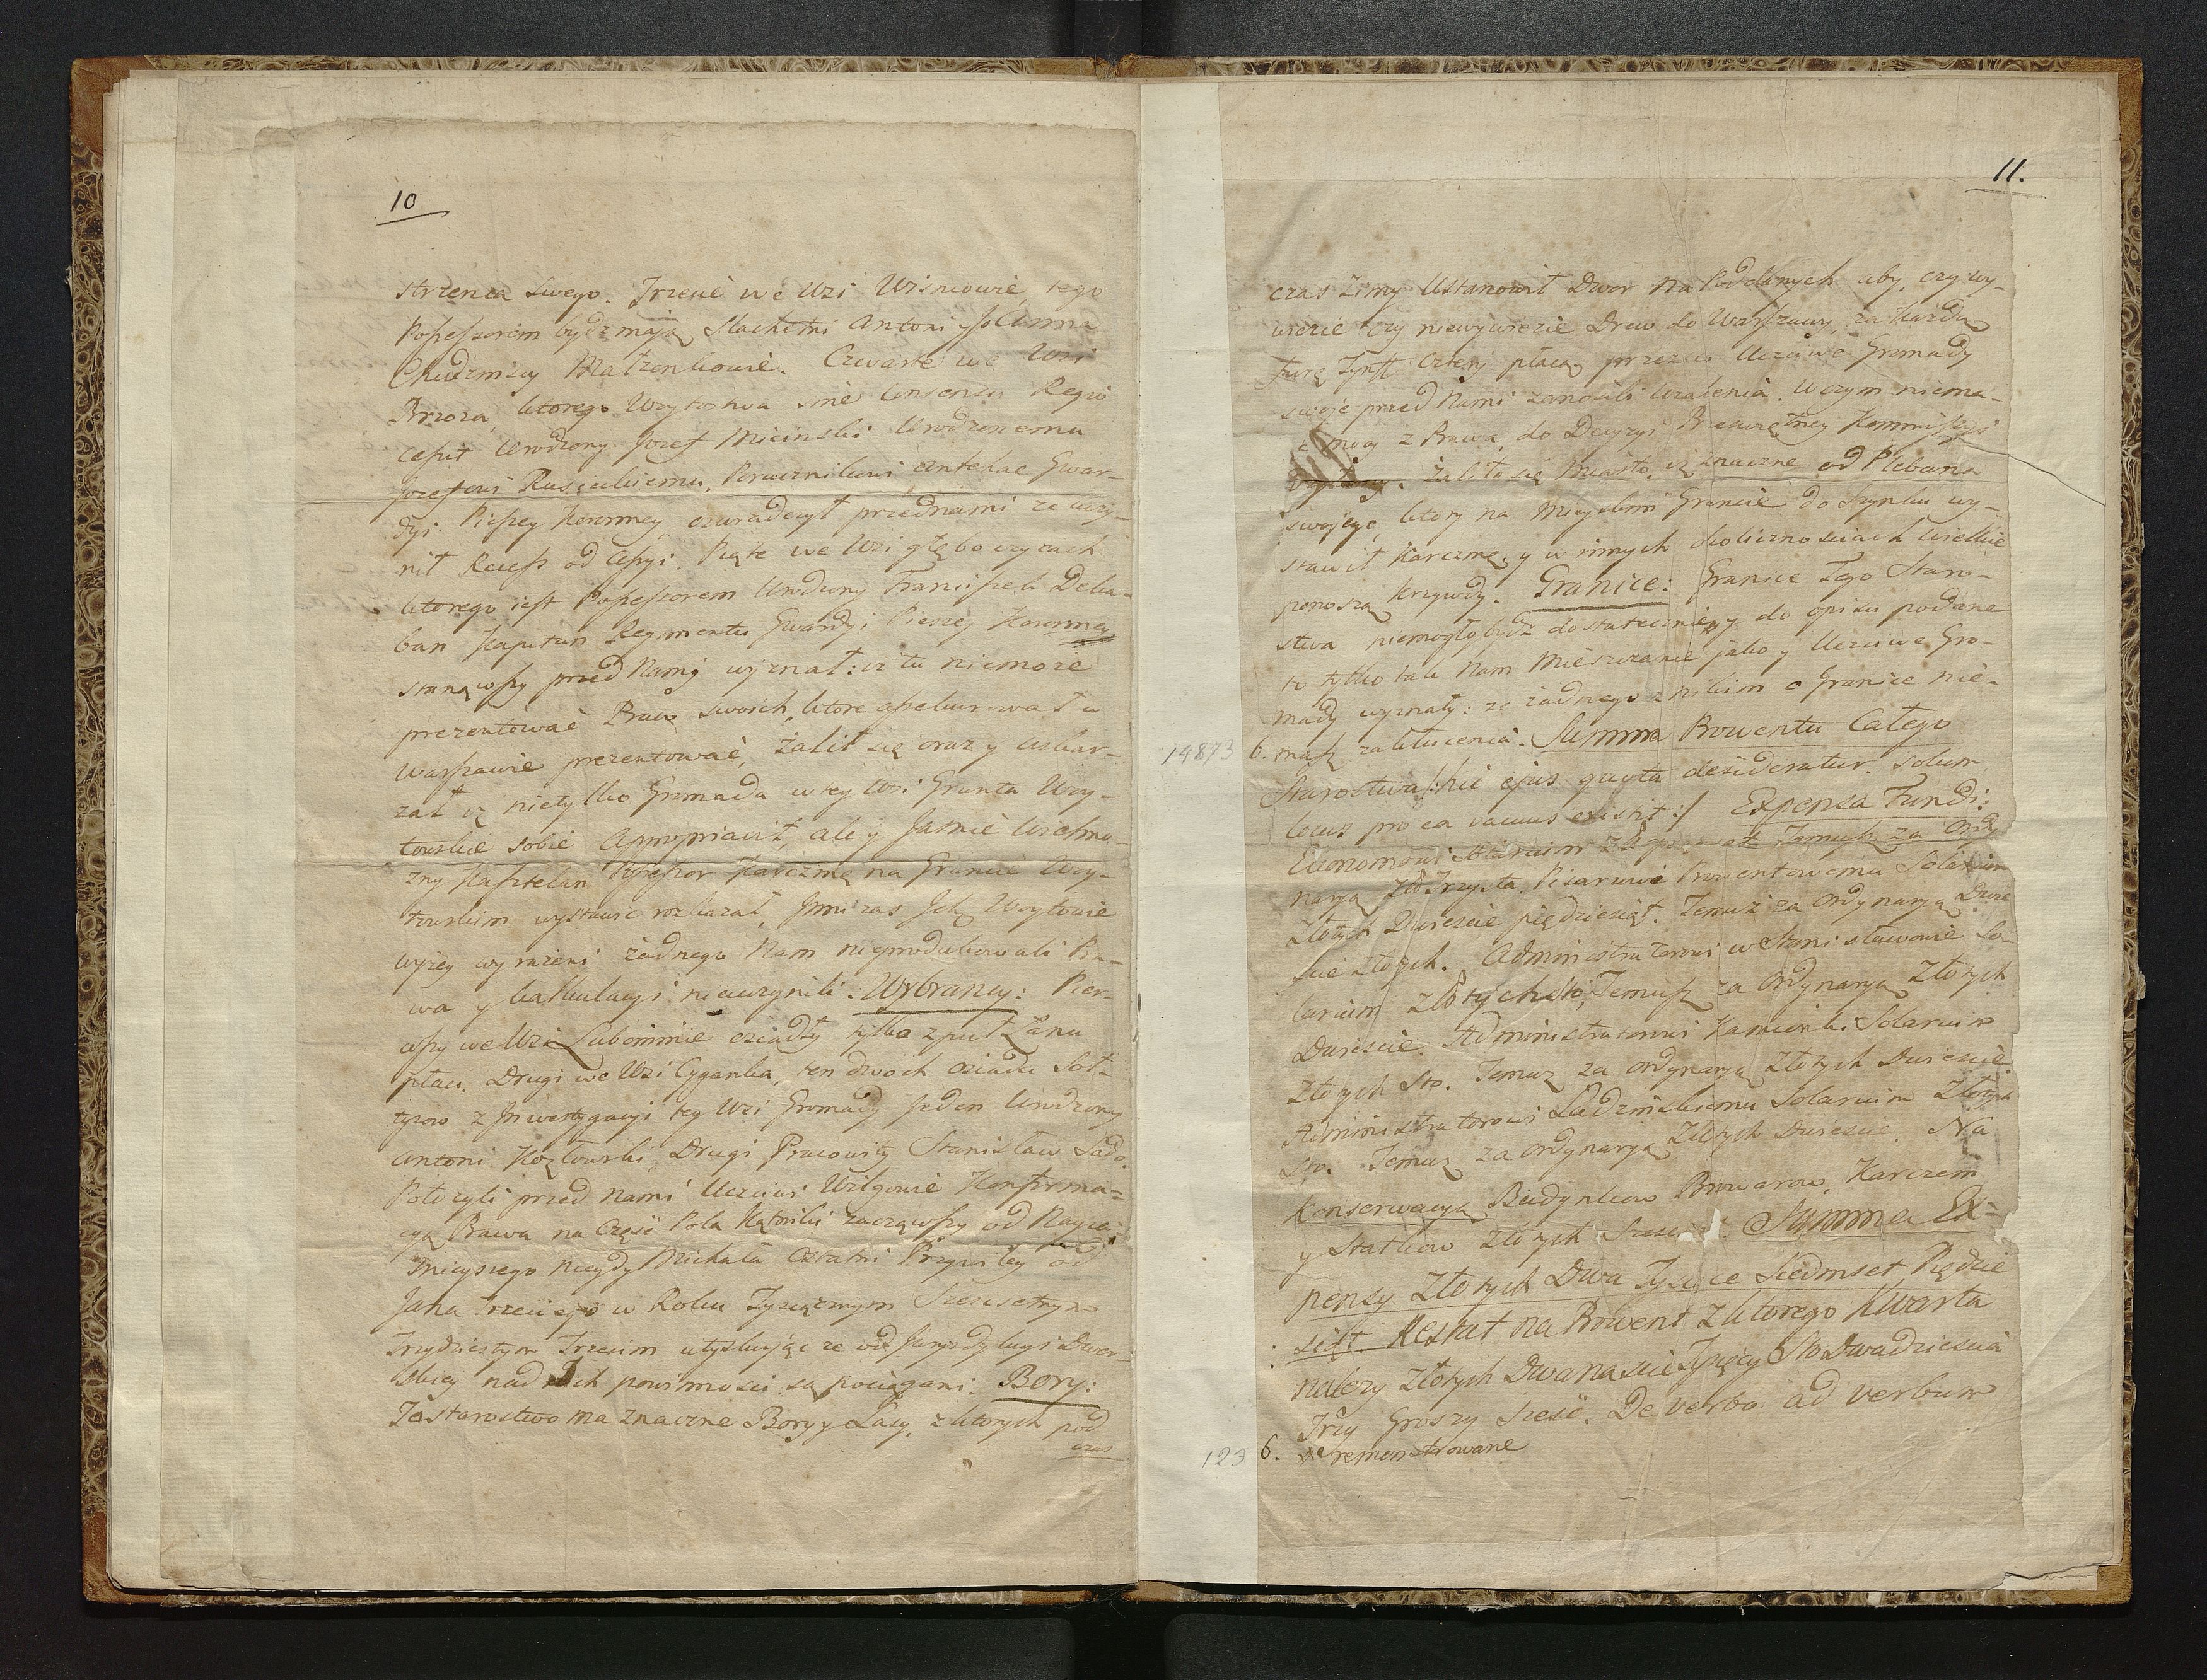 10
strzenca swego. Trzecie we Wsi Wisniowie, tego
Possessorem bydz maią Slachetni Antoni y Anna
Chudzinscy Małzenkowie. Czwarte we Wsi
Brzoza, ktorego Woytostwa sine Consensu Regio
cessit Urodzony Jozef Micinski Urodzonemu
Jozefowi Rusieckiemu, Porucznikowi antehac Gwar-
dyi Pieszey Koronney, oswiadczył przed nami ze uczy-
nił Recess od Cessyi. Piąte we Wsi Głęboczycach
ktorego iest Possessorem Urodzony Franciszek Deka-
ban Kapitan Regimentu Gwardyi Pieszey Koronney
stanąwszy przed Namy wyznał: iz tu niemoze
prezentować Praw swoich, ktore apekurował w
Warszawie prezentować, żalił się oraz y uskar-
zał iz nietylko Gromada w tey Wsi Grunta Woy-
towskie sobie appropriavit, ale y Jasnie Wielmo-
zny Kasztelan Possessor Karczmę na Gruncie Woy-
towskim wystawic rozkazał, Inni zas Ichmc Woytowie
wyzey wyrazeni żadnego Nam nieprodukowali Pra-
wa y kalkulacyi nieuczynili. Wybrancy: Pier-
wszy we Wsi Lubominie osiadły tylko z puł Łanu
płaci. Drugi we Wsi Cyganka, ten dwoch osiada Soł-
tysow z Inwestygacyi tey Wsi Gromady Jeden Urodzony
Antoni Kozłowski, Drugi Pracowity Stanisław Sado.
Połozyli przed Nami Uczciwi Wilgowie Konfirma-
cyą Prawa na Część Pola Kątniki zacząwszy od Nayia-
snieyszego niegdy Michała ostatni Przywiley od
Jana Trzeciego w Roku Tysiącznym Szescsetnym
Trzydziestym Trzecim utyskując ze od Juryzdykcyi Dwor-
skiey nad Ich powinnosci są pociągani. Bory:
To starostwo ma znaczne Bory y Lasy, z ktorych pod
czas
11.
czas Zimy Ustanowił Dwor na Poddanych aby, czy wy-
wiezie czy niewywiezie Drew do Warszawy, za Każdą
Furę Tynff Cztery płacą przez co Uczciwe Gromady
swoje przed Nami zanosili Uzalenia. W czym niema-
iąc mocy z Prawa do Decyzyi Przeswiętney Kommissyi
. Zaliło się Miasto iz znaczne od Plebana
swojego, ktory na Mieyskim Gruncie do Szynku wy-
stawił Karczmę, y w innych okolicznosciach wielkie
ponoszą krzywdy. Granice: Granice Tego Staro-
stwa niemogły bydz dostateczniey do opisu podane
to tylko tak Nam Mieszczanie jako y Uczciwe Gro-
mady wyznały: ze żadnego z nikim o Granice nie-
19873 6. masz zakłucenia. Summa Prowentu Całego
Starostwa /:hic ejus quota desideratur. solum
locus pro ea vacuus existit:/ Expensa Fundi:
Ekonomowi Solarium Temusz za Ordy
naryą Zło: Trzysta. Pisarzowi Prowentowemu Solarium
Złotych Dwiescie pięćdziesiąt. Temuz za Ordynaryą Dwie
scie złotych. Administratorowi w Stanisławowie So-
larium Złotych sto; Temusz za Ordynaryą Złotych
Dwiescie. Administratorowi Kamionki Solarium
Złotych Sto. Temuz za Ordynaryą Złotych Dwiescie
Administratorowi Ladzinskiemu Solarium Złotych
Sto. Temuz za Ordynaryą Złotych Dwiescie. Na
Konserwacyą Budynkow Browarow, Karczem
y Statkow Złotych . Summa Ex-
pensy Złotych Dwa Tysiące Siedmset Pięćdzie
siąt. Restat na Prowent z ktorego Kwarta
należy Złotych Dwanascie Tysięcy Sto Dwadziescia
Trzy Groszy szesć. De verbo ad verbum
123 6. remonstrowane